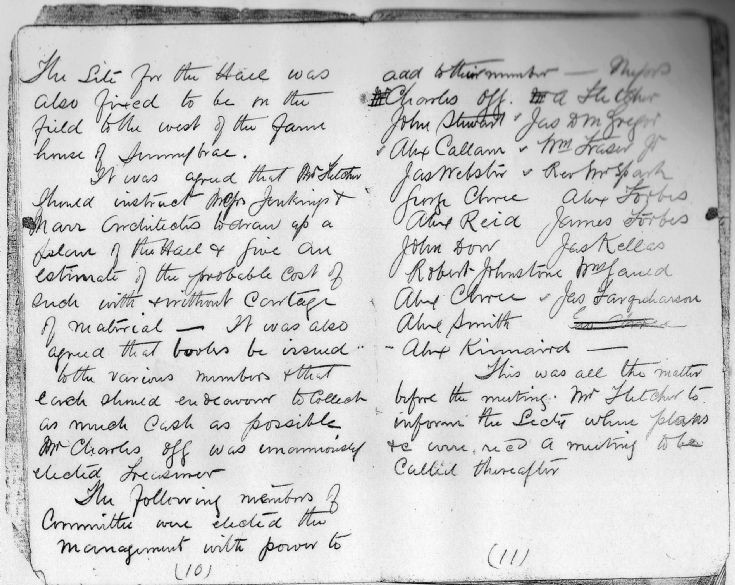 The Site for the Hall was
also fixed to be on the
field to the west of the farm
house of Sunnybrae.
It was agreed that Mr Fletcher
should instruct Messrs Jenkins &
Marr Architects to draw up a
plan of the Hall & give an
estimate of the probable cost of
such with & without Cartage
of material — It was also
agreed that books be issued
to the various members & that
each should endeavour to collect
as much Cash as possible
Mr Charles Off was unanimously
elected Treasurer
The following members of
Committee were elected the
management with power to
(10)
add to their number — Messrs
Charles Off. A Fletcher
John Stewart Jas D McGregor
Alex Callam Wm Fraser Jr
Jas Webster Rev Mr Spark
George Chree Alex Forbes
Alex Reid James Forbes
John Dow Jas Kellas
Robert Johnstone Wm
Alex Chree Jas Farquharson
Alex Smith
- Alex Kinnaird —
This was all the matter
before the meeting. Mr Fletcher to
inform the Secty when plans
&c were rec'd a meeting to be
Called thereafter
(11)